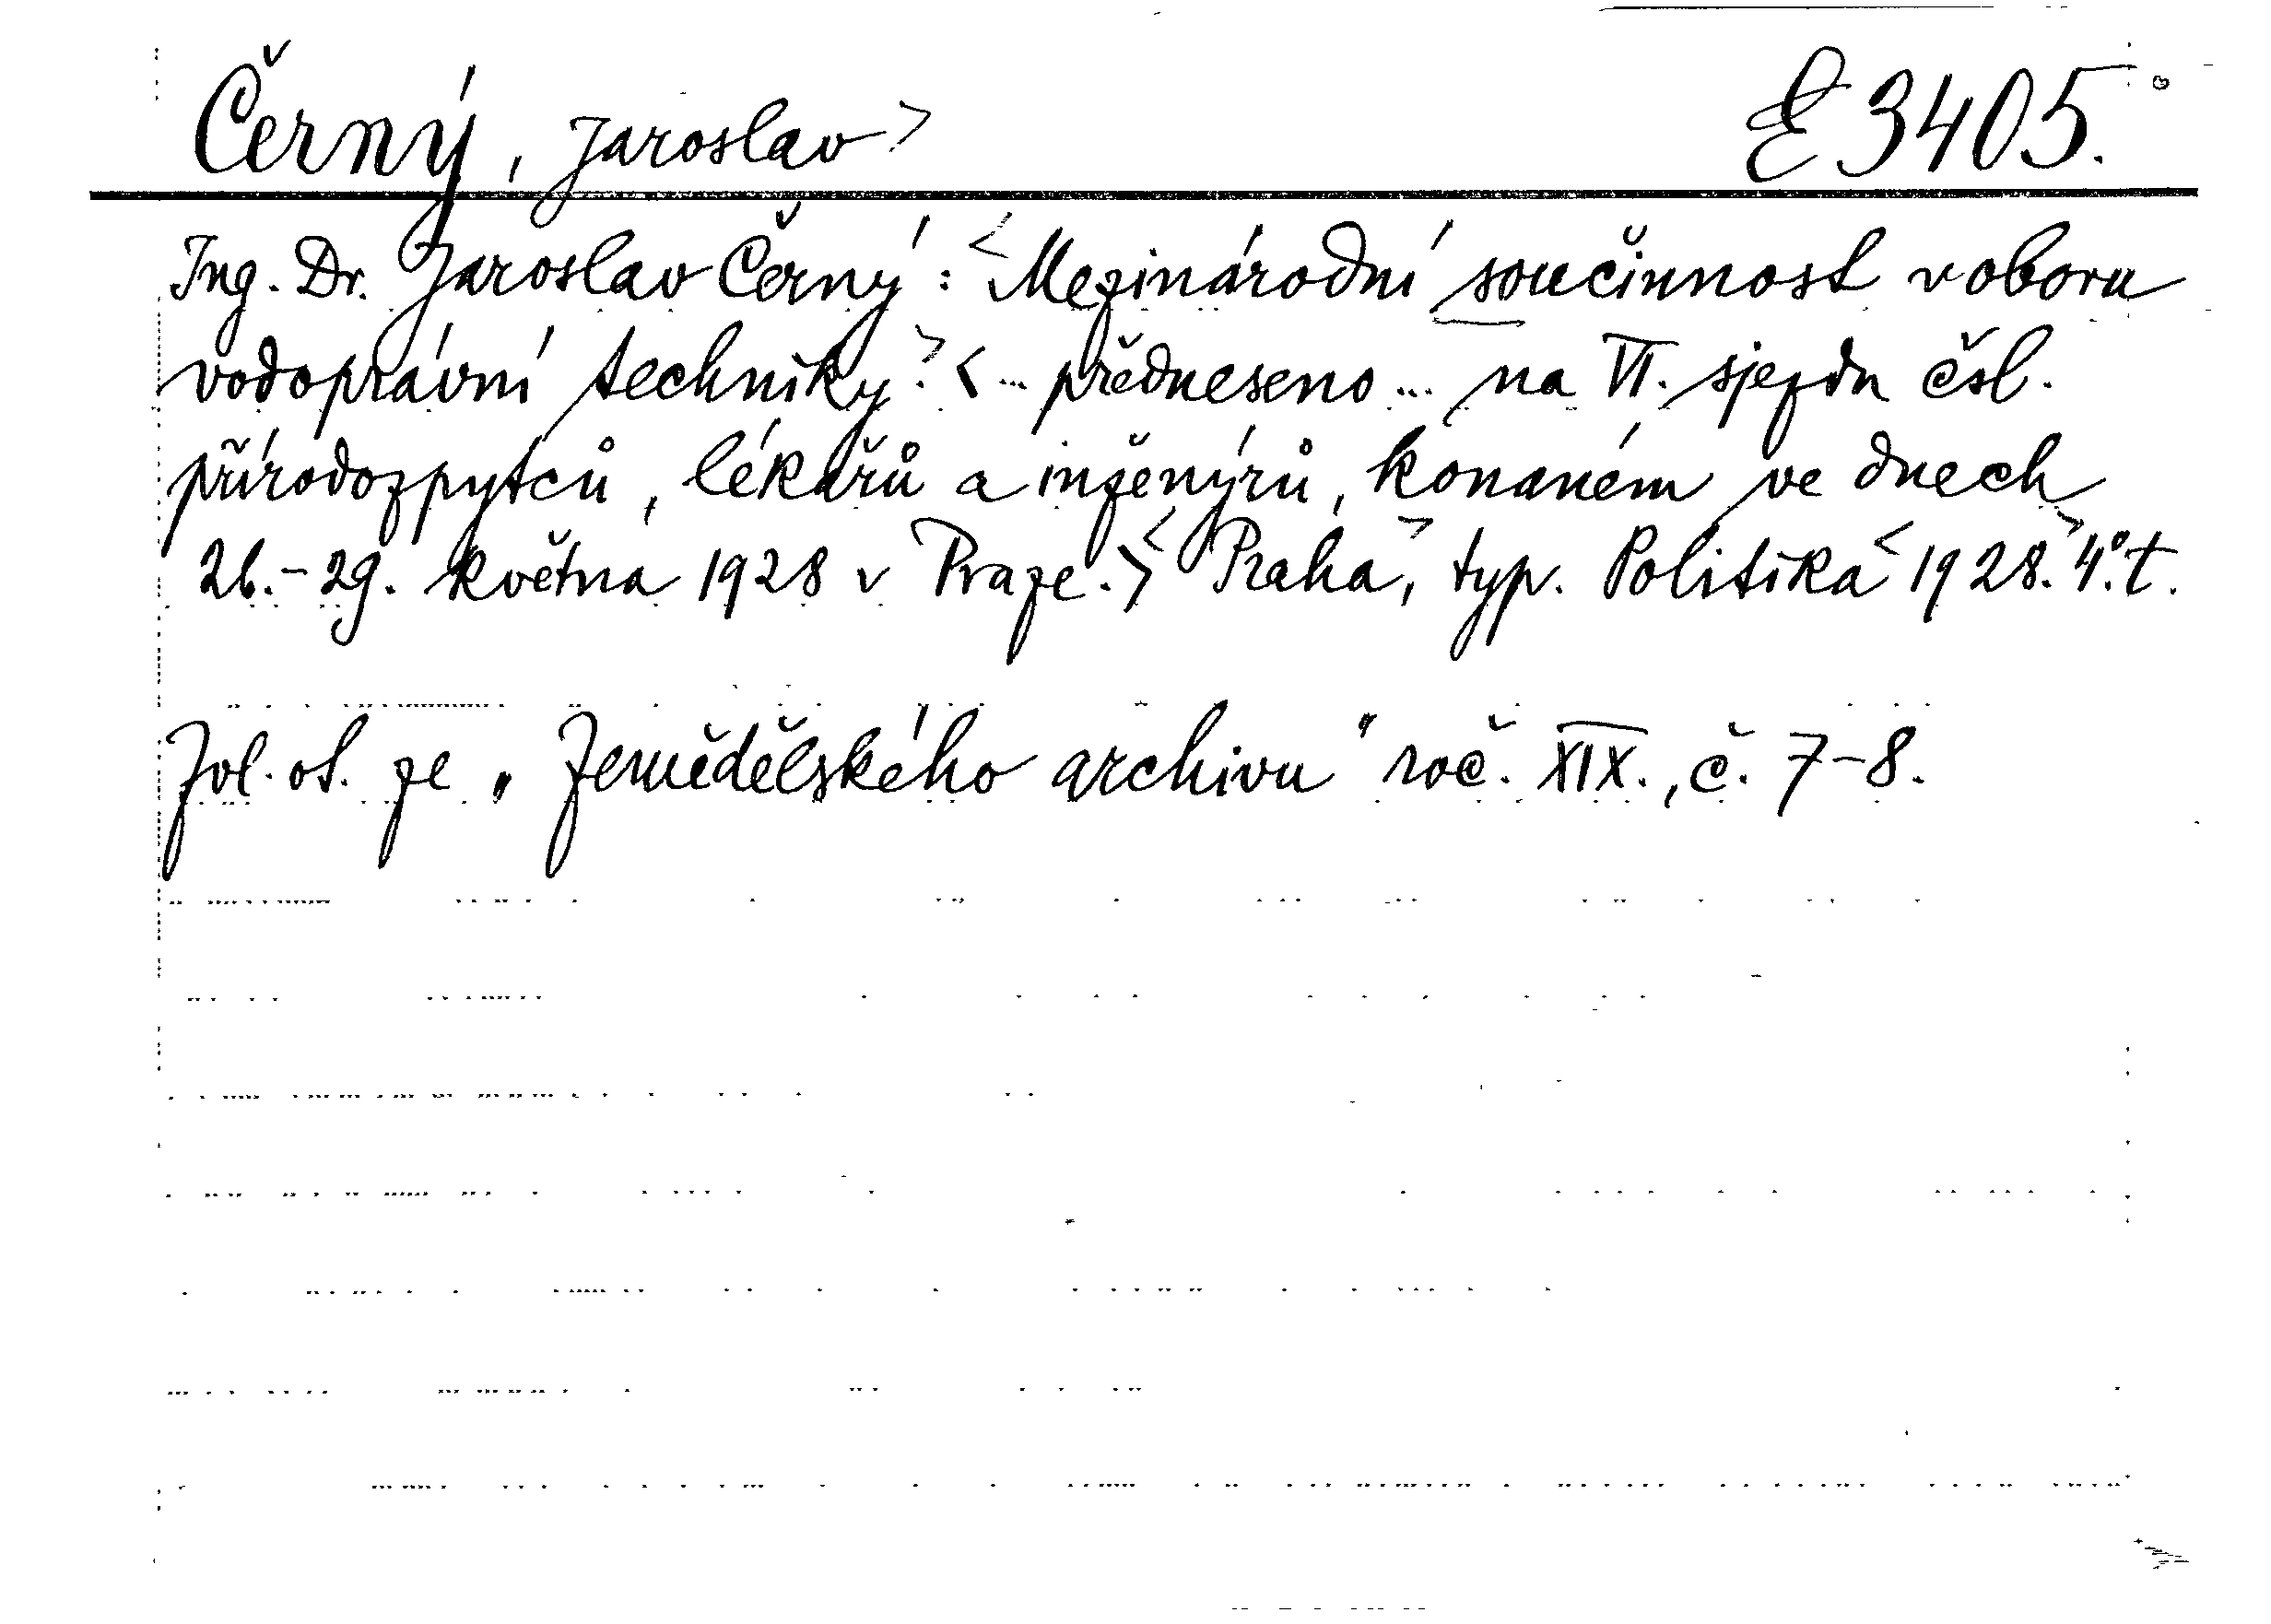 Černý, Jaroslav> E 3405.
Ing. Dr. Jaroslav Černý: <Mezinárodní součinnost v oboru
vodoprávní techniky.> <... předneseno ... na VI. sjezdu čsl.
přírodozpytců, lékařů a inženýrů, konaném ve dnech
26.-29. května 1928 v Praze.> <Praha>, typ. Politika <1928.> 4°. t.
Zvl. ot. ze „Zemědělského archivu" roč. XIX., č. 7-8.